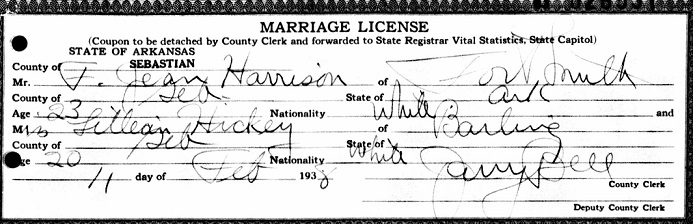 MARRIAGE LICENSE
(Coupon to be detached by County Clerk and forwarded to State Registrar Vital Statistics, State Capitol)
STATE OF ARKANSAS
County of SEBASTIAN
Mr. F. Jean Harrison of Fort Smith
County of Seb State of Ark
Age 23 Nationality White and
M Lillian Hickey of Barling
County of Seb State of
Age 20 Nationality White
11 day of Feb 1938
County Clerk
Deputy County Clerk